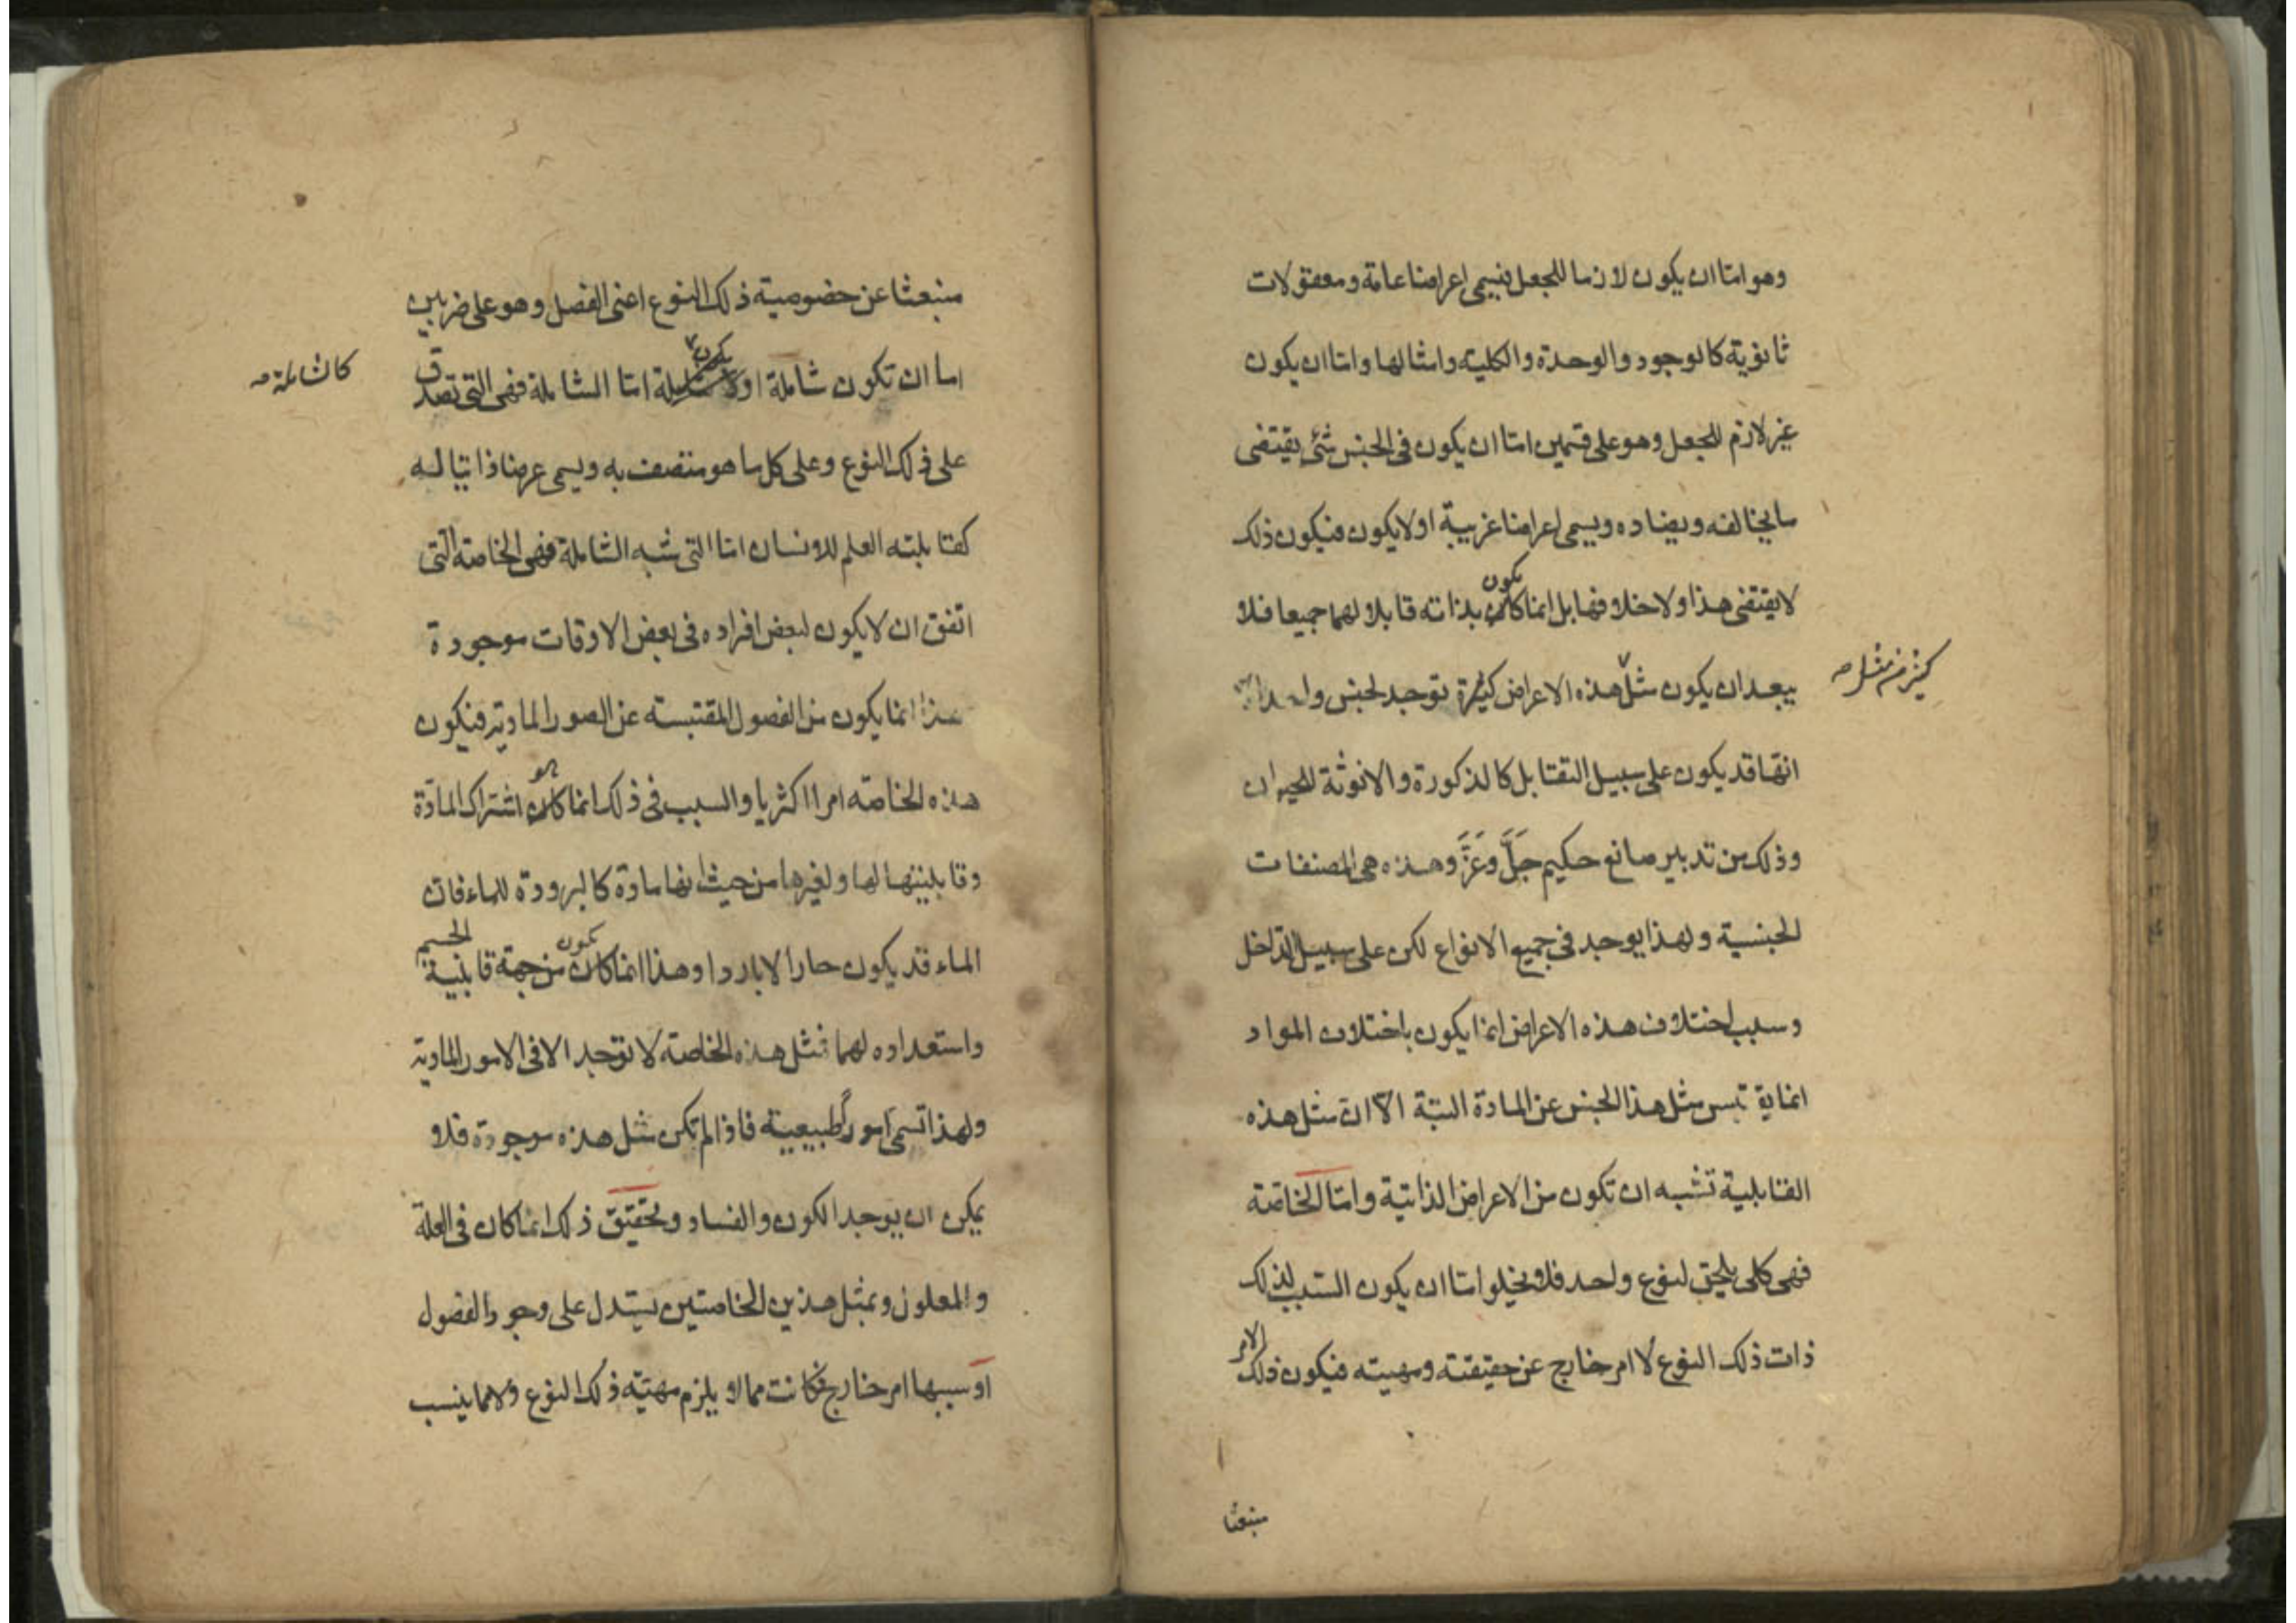 وهو اما ان يكون لازما للجعل فيسمى اعراضا عامة ومعقولات
ثانوية كالوجود والوحدة والكلية وامثالها واما ان يكون
غير لازم للجعل وهو على قسمين اما ان يكون فى الجنس شئ يقتضى
ما يخالفه ويضاده ويسمى اعراضا غريبة او لا يكون فيكون ذلك
لا يقتضى هذا ولا خلافها بل انما كان يكون بذاته قابلا لهما جميعا فلا
يبعد ان يكون مثل هذه الاعراض كثيرة توجد لجنس واحد
كثير من مثل صه
انها قد يكون على سبيل التقابل كالذكورة والانوثة للحيوان
وذلك من تدبير صانع حكيم جَلَّ وَعَزَّ وهذه هى المصنفات
الجنسية ولهذا يوجد فى جميع الانواع لكن على سبيل التداخل
وسبب اختلاف هذه الاعراض انما يكون باختلاف المواد
انما يقتبس مثل هذا الجنس عن المادة البتة الا ان مثل هذه
القابلية تشبه ان تكون من الاعراض الذاتية واما الخاصة
فهى كلى يلحق لنوع واحد فلا يخلوا اما ان يكون السبب لذلك
ذات ذلك النوع لا امر خارج عن حقيقته ومهيته فيكون ذلك الامر
منبعثا
منبعثا عن خصوصية ذلك النوع اعنى الفصل وهو على ضربين
اما ان تكون شاملة او لا يكون شاملة اما الشاملة فهى التى تصدق
كالشاملة صه
على ذلك النوع وعلى كل ما هو متصف به ويسمى عرضا ذاتيا له
كقابلية العلم للانسان اما التى شبه الشاملة فهى الخاصة التى
اتفق ان لا يكون لبعض افراده فى بعض الاوقات موجودة
هذا انما يكون من الفصول المقتبسة عن الصور المادية فيكون
هذه الخاصة امرا اكثريا والسبب فى ذلك انما كان هو اشتراك المادة
وقابليتها لها ولغيرها من حيث انها مادة كالبرودة للماء فان
الماء قد يكون حارا لا باردا وهذا انما كان يكون من جهة قابلية الجسم
واستعداده لهما فمثل هذه الخاصة لا توجد الا فى الامور المادية
ولهذا تسمى امورًا طبيعية فاذا لم تكن مثل هذه موجودة فلا
يمكن ان يوجد الكون والفساد وتحقيق ذلك انما كان فى العلة
والمعلول وبمثل هذين الخاصتين يستدل على وجود الفصول
او سببها امر خارج فكانت مما لا يلزم مهية ذلك النوع ولا مما ينسب